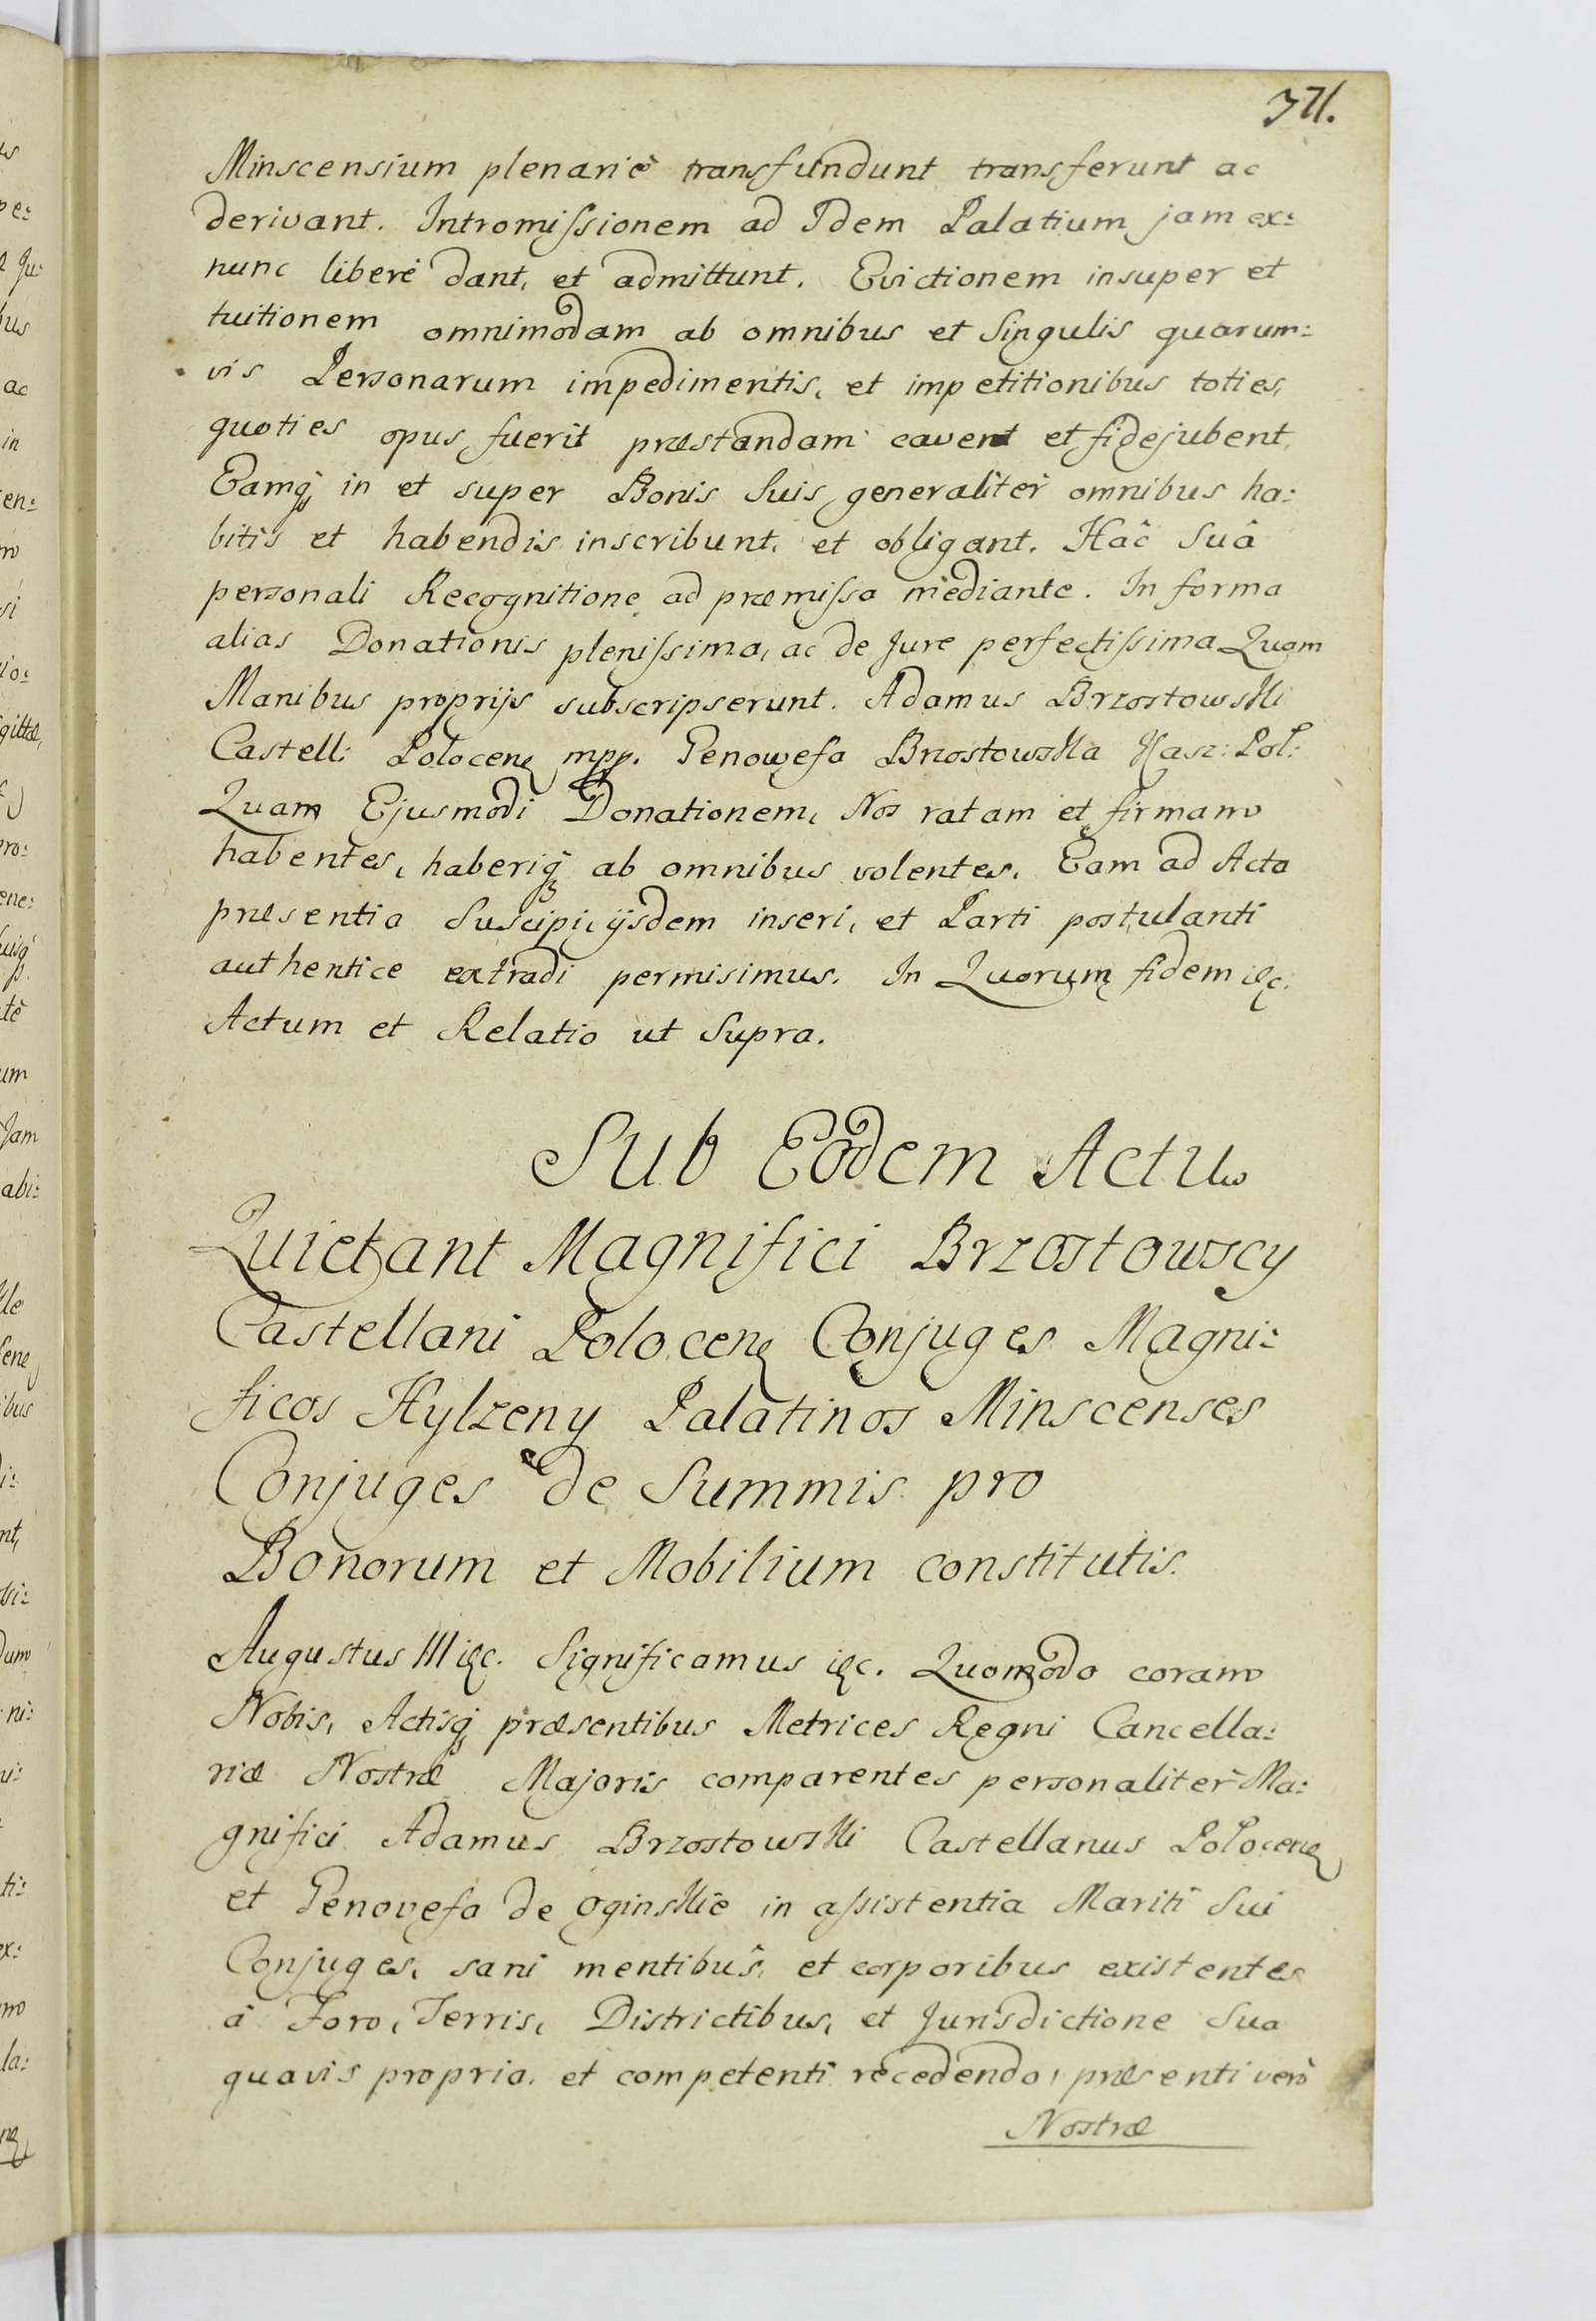 371.
Minscensium plenariè transfundunt transferunt ac
derivant. Intromissionem ad Idem Palatium jam ex:
nunc liberè dant, et admittunt. Evictionem insuper et
tuitionem omnimodam ab omnibus et Singulis quarum:
vis Personarum impedimentis, et impetitionibus toties,
quoties opus fuerit præstandam cavent et fidejubent,
Eamq in et super Bonis Suis generalitèr omnibus ha:
bitis et habendis inscribunt, et obligant. Hâc Suâ
personali Recognitione ad præmissa mediante. In forma
alias Donationis plenissima, ac de Jure perfectissima Quam
Manibus proprijs subscripserunt. Adamus Brzostowski
Castell: Polocen mpp. Genowefa Brzostowska Kasz: Pol:
Quam Ejusmodi Donationem, Nos ratam et firmam
habentes, haberiq ab omnibus volentes, Eam ad Acta
præsentia Suscipi, ijsdem inseri, et Parti postulanti
authentice extradi permisimus. In Quorum fidem &c.
Actum et Relatio ut Supra.
Sub Eodem Actu
Quietant Magnifici Brzostowscy
Castellani Polocen Conjuges Magni:
ficos Hylzeny Palatinos Minscenses
Conjuges de Summis pro
Bonorum et Mobilium constitutis.
Augustus III &c. Significamus &c. Quomodo coram
Nobis, Actisq præsentibus Metrices Regni Cancella:
riæ Nostræ Majoris comparentes personalitèr Ma:
gnifici Adamus Brzostowski Castellanus Polocen
et Genovefa de Oginskie in assistentia Mariti Sui
Conjuges, sani mentibus, et corporibus existentes
à Foro, Terris, Districtibus, et Jurisdictione Sua
quavis propria, et competenti recedendo, præsenti verò
Nostræ